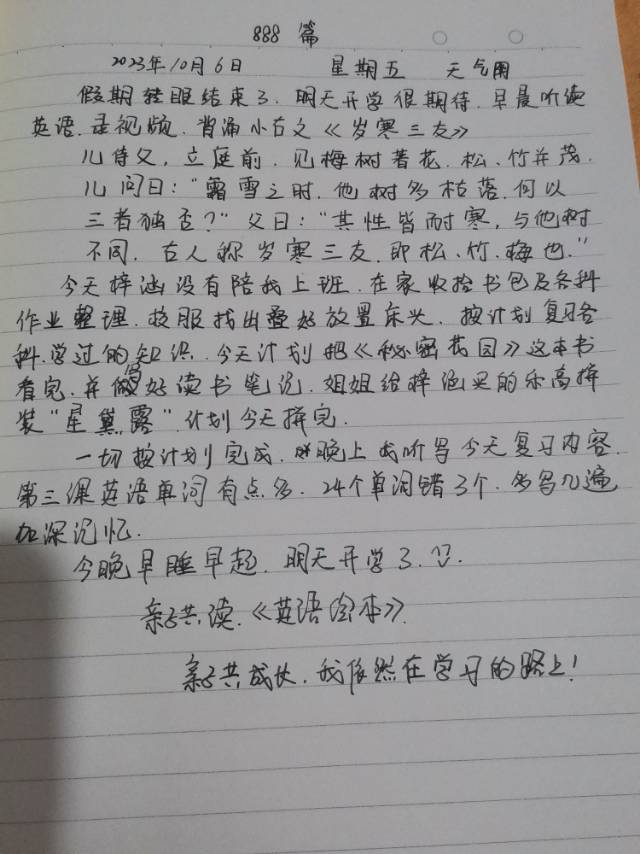 888 篇
2023年10月6日 星期五 天气阴
假期转眼结束了. 明天开学很期待. 早晨听读
英语. 录视频. 背诵小古文《岁寒三友》
儿侍父, 立庭前. 见梅树著花. 松、竹并茂.
儿问曰: "霜雪之时. 他树多枯落. 何以
三者独否?" 父曰: "其性皆耐寒, 与他树
不同. 古人称岁寒三友. 即松、竹、梅也."
今天梓涵没有陪我上班. 在家收拾书包及各科
作业整理. 校服找出叠好放置床头. 按计划复习各
科. 学过的知识. 今天计划把《秘密花园》这本书
看完. 并做好读书笔记. 姐姐给梓涵买的乐高拼
装"星黛露". 计划今天拼完.
一切按计划完成. 晚上我听写今天复习内容.
第三课英语单词有点多. 24个单词错3个. 多写几遍
加深记忆.
今晚早睡早起. 明天开学了.
亲子共读.《英语绘本》.
亲子共成长. 我依然在学习的路上!